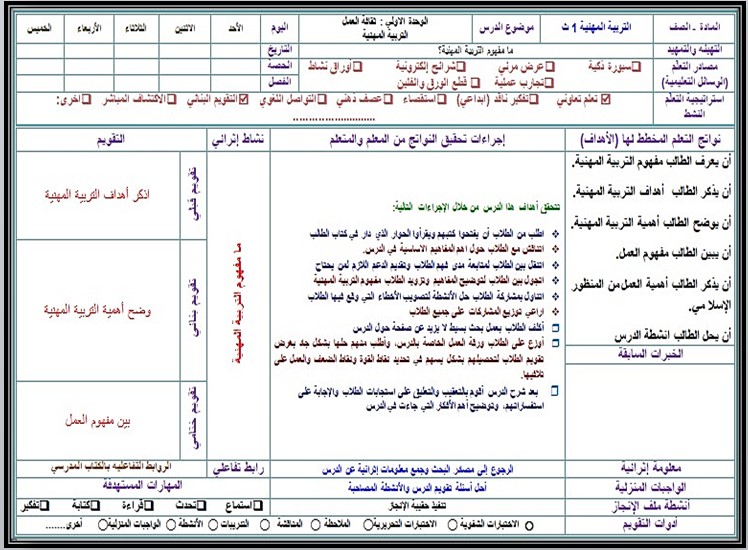 المادة - الصف
التربية المهنية 1 ث
موضوع الدرس
الوحدة الاولي : ثقافة العمل
التربية المهنية
اليوم
الأحد
الاثنين
الثلاثاء
الأربعاء
الخميس
التهيئه والتمهيد
ما مفهوم التربية المهنية؟
التاريخ
مصادر التعلم
(الوسائل التعليمية)
سبورة ذكية
عرض مرئي
شرائح إلكترونية
أوراق نشاط
تجارب عملية
قطع الورق والفلين
الحصة
الفصل
استراتيجية التعلم
النشط
تعلم تعاوني
تفكير ناقد (ابداعي)
استقصاء
عصف ذهني
التواصل اللغوي
التقويم البنائي
الاكتشاف المباشر
اخرى:
............................
نواتج التعلم المخطط لها (الأهداف)
إجراءات تحقيق النواتج من المعلم والمتعلم
نشاط إثرائي
التقويم
أن يعرف الطالب مفهوم التربية المهنية.
أن يذكر الطالب أهداف التربية المهنية.
أن يوضح الطالب أهمية التربية المهنية.
أن يبين الطالب مفهوم العمل.
أن يذكر الطالب أهمية العمل من المنظور
الإسلامي.
أن يحل الطالب انشطة الدرس
الخبرات السابقة
تتحقق أهداف هذا الدرس من خلال الإجراءات التالية:
اطلب من الطلاب أن يفتحوا كتبهم ويقرأوا الحوار الذي دار في كتاب الطالب
اتناقش مع الطلاب حول اهم المفاهيم الاساسية في الدرس.
انتقل بين الطلاب لمتابعة مدى فهم الطلاب وتقديم الدعم اللازم لمن يحتاج
اتجول بين الطلاب لتوضيح المفاهيم وتزويد الطلاب مفهوم التربية المهنية
اتناول بمشاركة الطلاب حل الأنشطة لتصويب الأخطاء التي وقع فيها الطلاب
اراعي توزيع المشاركات على جميع الطلاب
أكلف الطلاب بعمل بحث بسيط لا يزيد عن صفحة حول الدرس
أوزع على الطلاب ورقة العمل الخاصة بالدرس، وأطلب منهم حلها بشكل جاد بغرض
تقويم الطلاب لتحصيلهم بشكل يسهم في تحديد نقاط القوة ونقاط الضعف والعمل على
تلافيها.
بعد شرح الدرس أقوم بالتعقيب والتعليق على استجابات الطلاب والإجابة على
استفساراتهم، وتوضيح أهم الأفكار التي جاءت في الدرس
ما مفهوم التربية المهنية
تقويم قبلي
اذكر أهداف التربية المهنية
تقويم بنائي
وضح أهمية التربية المهنية
تقويم ختامي
بين مفهوم العمل
معلومة إثرائية
الرجوع إلى مصادر البحث وجمع معلومات إثرائية عن الدرس
رابط تفاعلي
الروابط التفاعليه بالكتاب المدرسي
الواجبات المنزلية
أحل أسئلة تقويم الدرس والأنشطة المصاحبة
المهارات المستهدفة
أنشطة ملف الإنجاز
تنفيذ حقيبة الإنجاز
استماع
تحدث
قراءة
كتابة
تفكير
أدوات التقويم
الاختبارات الشفوية
الاختبارات التحريرية
الملاحظة
المناقشة
التدريبات
الأنشطة
الواجبات المنزلية
أخرى.......